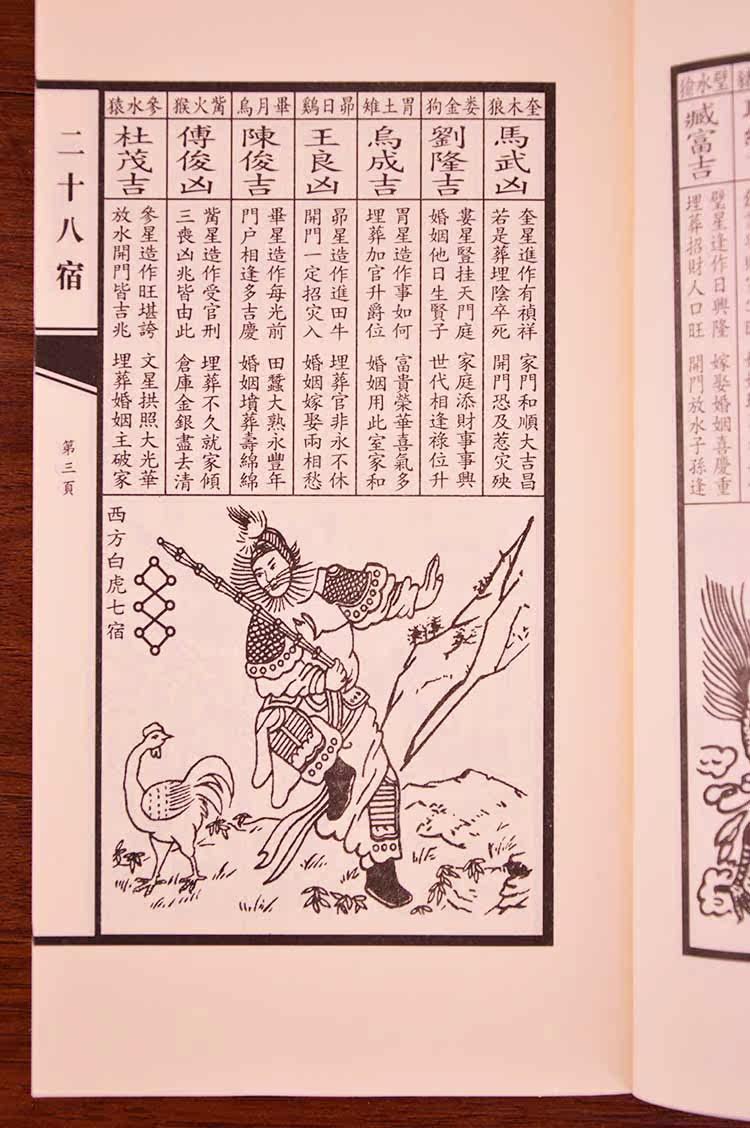 璧水
臧富吉
璧星逢作日興隆
嫁娶婚姻喜慶重
埋葬招財人口旺
開門放水子孫逢
奎木狼
馬武凶
奎星進作有禎祥
家門和順大吉昌
若是葬埋陰卒死
開門恐及惹灾殃
娄金狗
劉隆吉
婁星竪挂天門庭
家庭添財事事興
婚姻他日生賢子
世代相逢祿位升
胃土雉
烏成吉
胃星造作事如何
富貴榮華喜氣多
埋葬加官升爵位
婚姻用此室家和
昴日鷄
王良凶
昴星造作進田牛
埋葬官非永不休
開門一定招灾入
婚姻嫁娶兩相愁
畢月烏
陳俊吉
畢星造作每光前
田蠶大熟永豐年
門户相逢多吉慶
婚姻墳葬壽綿綿
觜火猴
傅俊凶
觜星造作受官刑
埋葬不久就家傾
三喪凶兆皆由此
倉庫金銀盡去清
參水猿
杜茂吉
參星造作旺堪誇
文星拱照大光華
放水開門皆吉兆
埋葬婚姻主破家
西方白虎七宿
二十八宿
第三頁